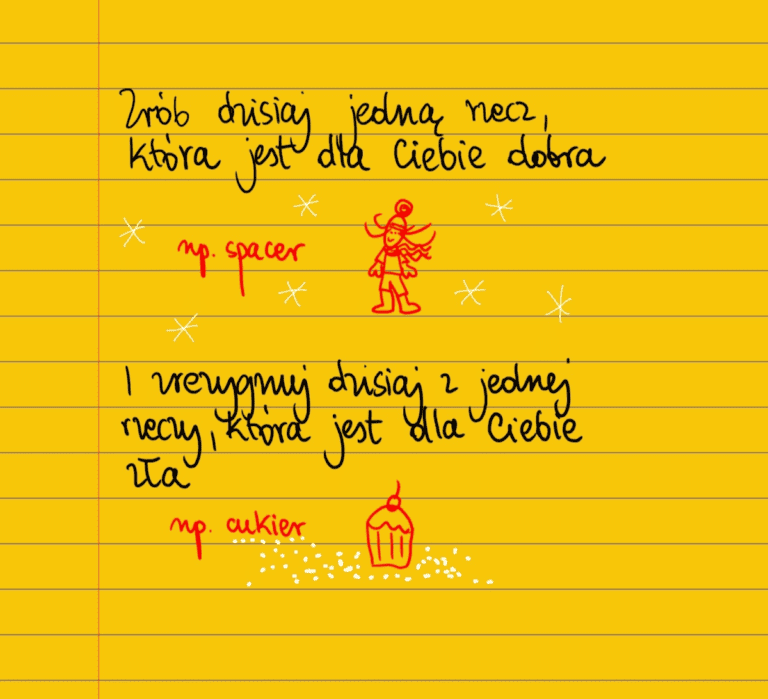 Zrób dzisiaj jedną rzecz,
która jest dla Ciebie dobra
np. spacer
I zrezygnuj dzisiaj z jednej
rzeczy, która jest dla Ciebie
zła
np. cukier